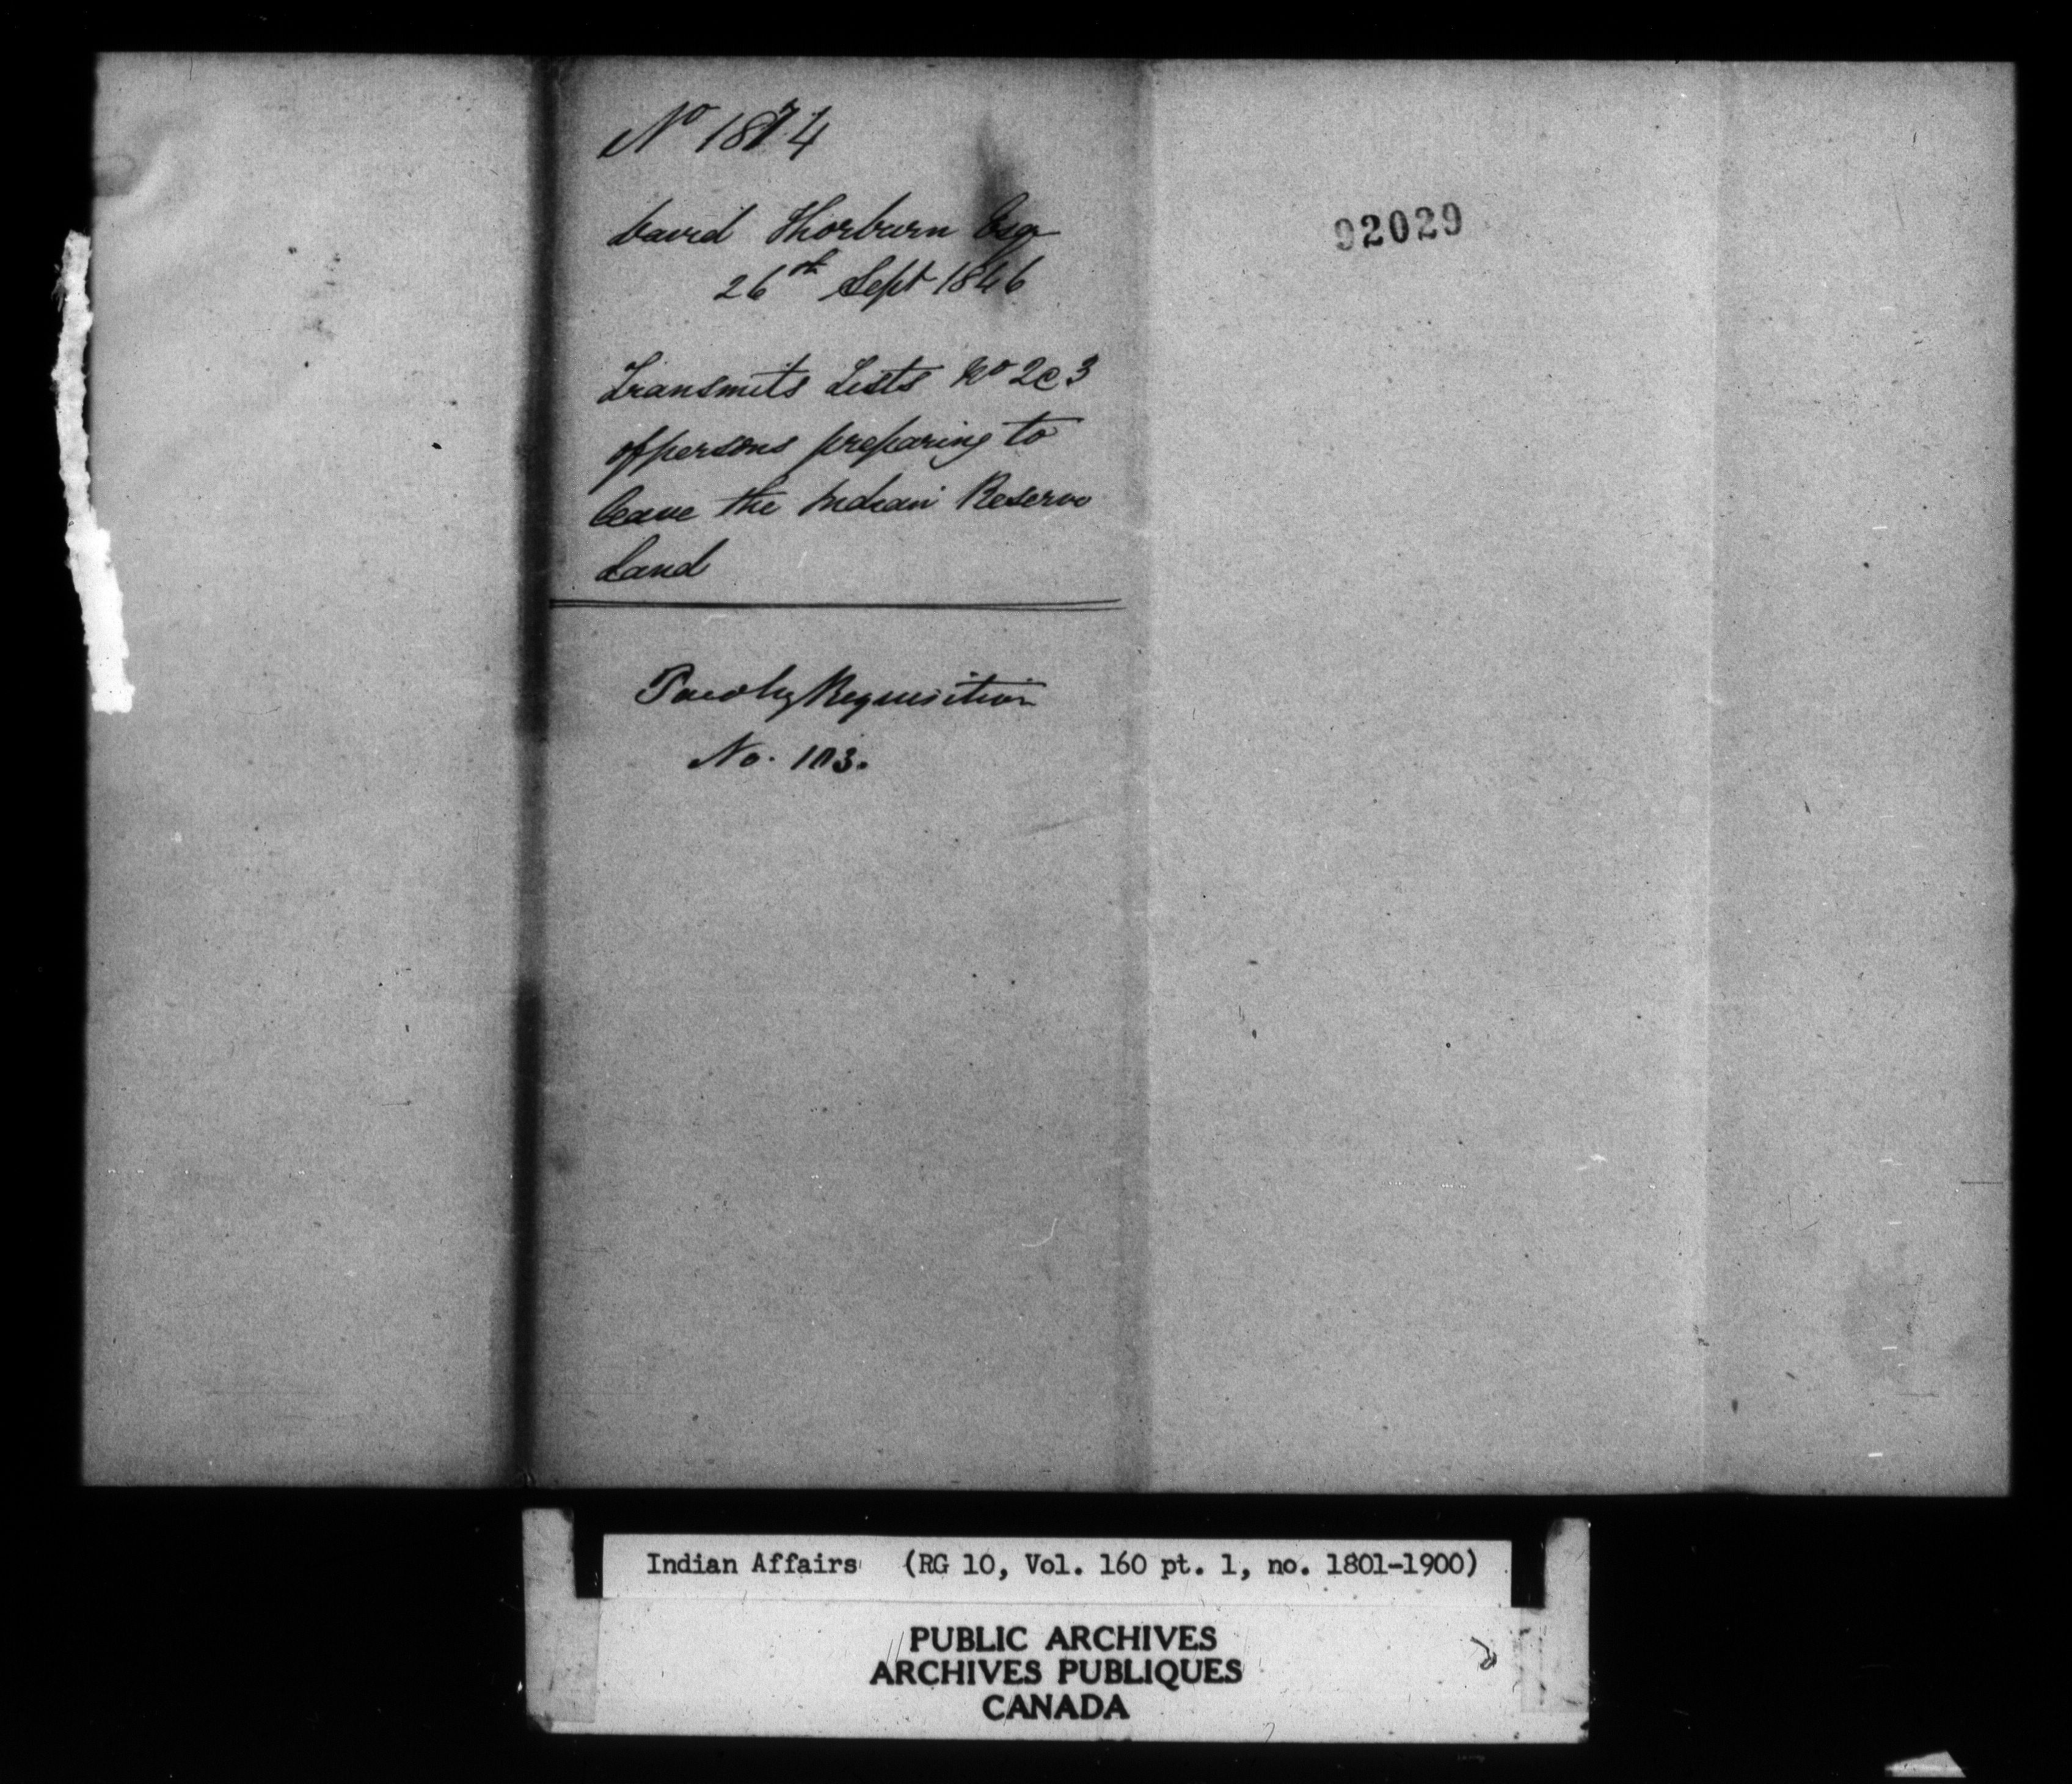 No 1874
David Thorburn Esqr
26th Sept 1846
Transmits Lists No 2 & 3
of persons preparing to
leave the Indian Reserve
Land
Requisition
No. 103.
92029
Indian Affairs (RG 10, Vol. 160 pt. 1, no. 1801-1900)
PUBLIC ARCHIVES
ARCHIVES PUBLIQUES
CANADA